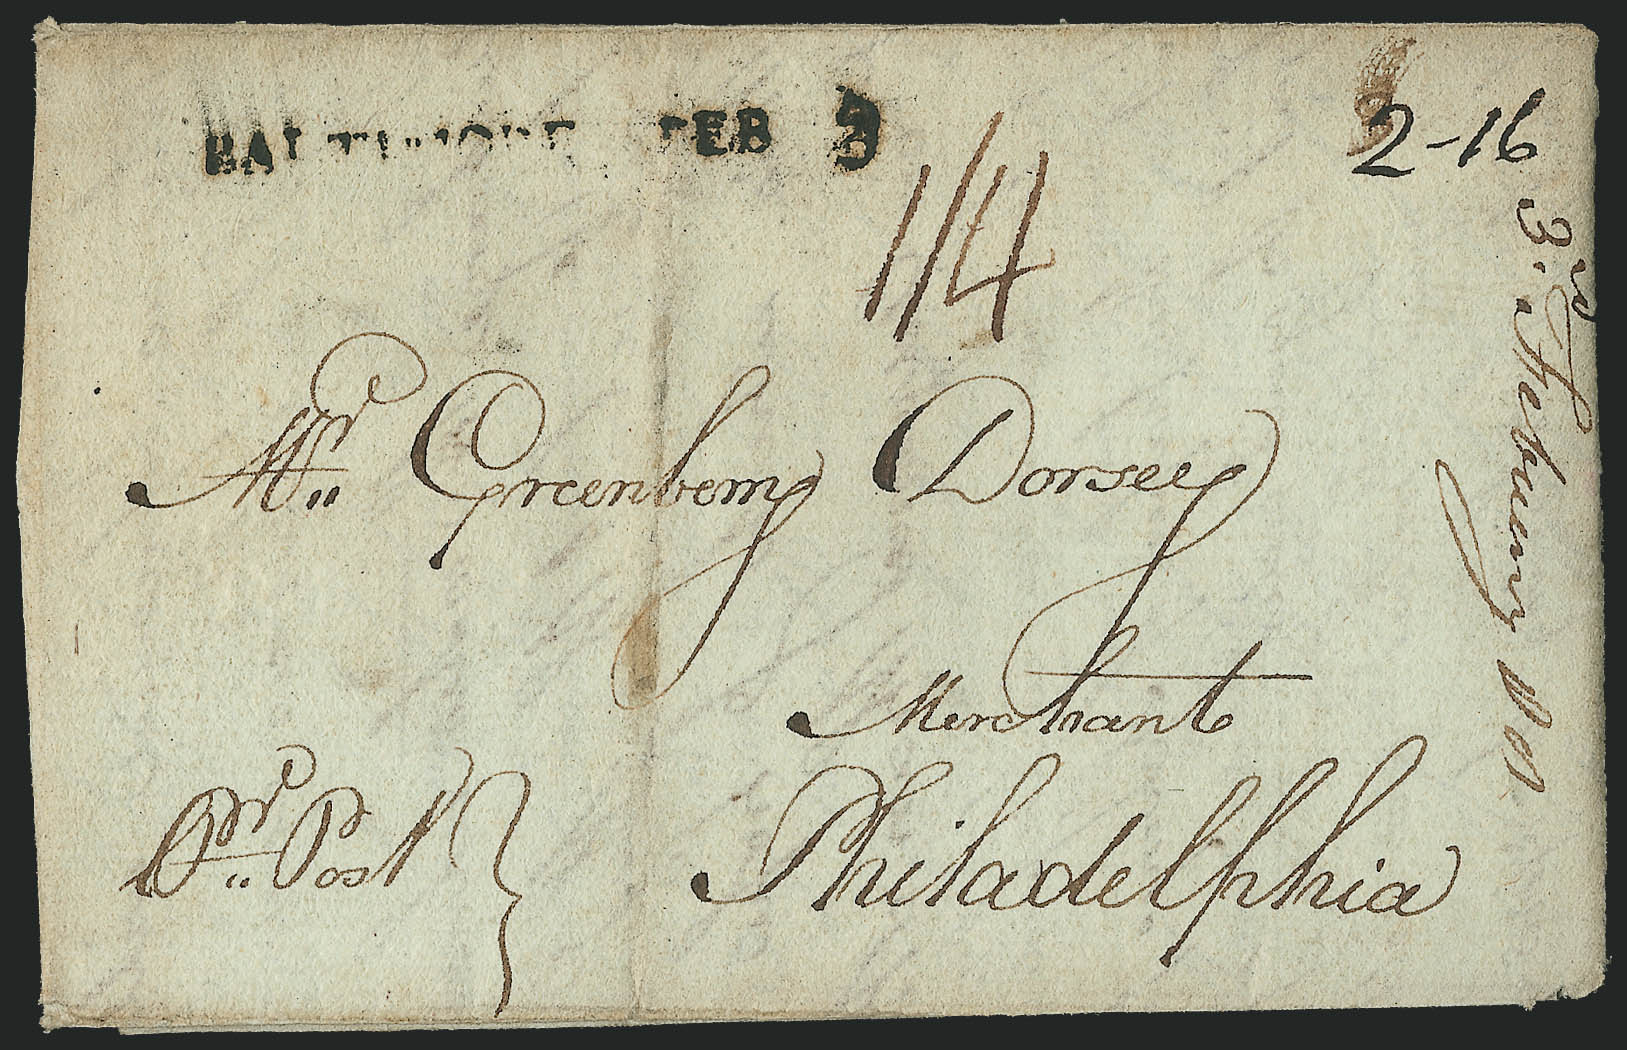 BALTIMORE FEB 3
2-16
1/4
Mr. Greenbemy Dorsey
Merchant
Pr. Post
Philadelphia
3rd. February